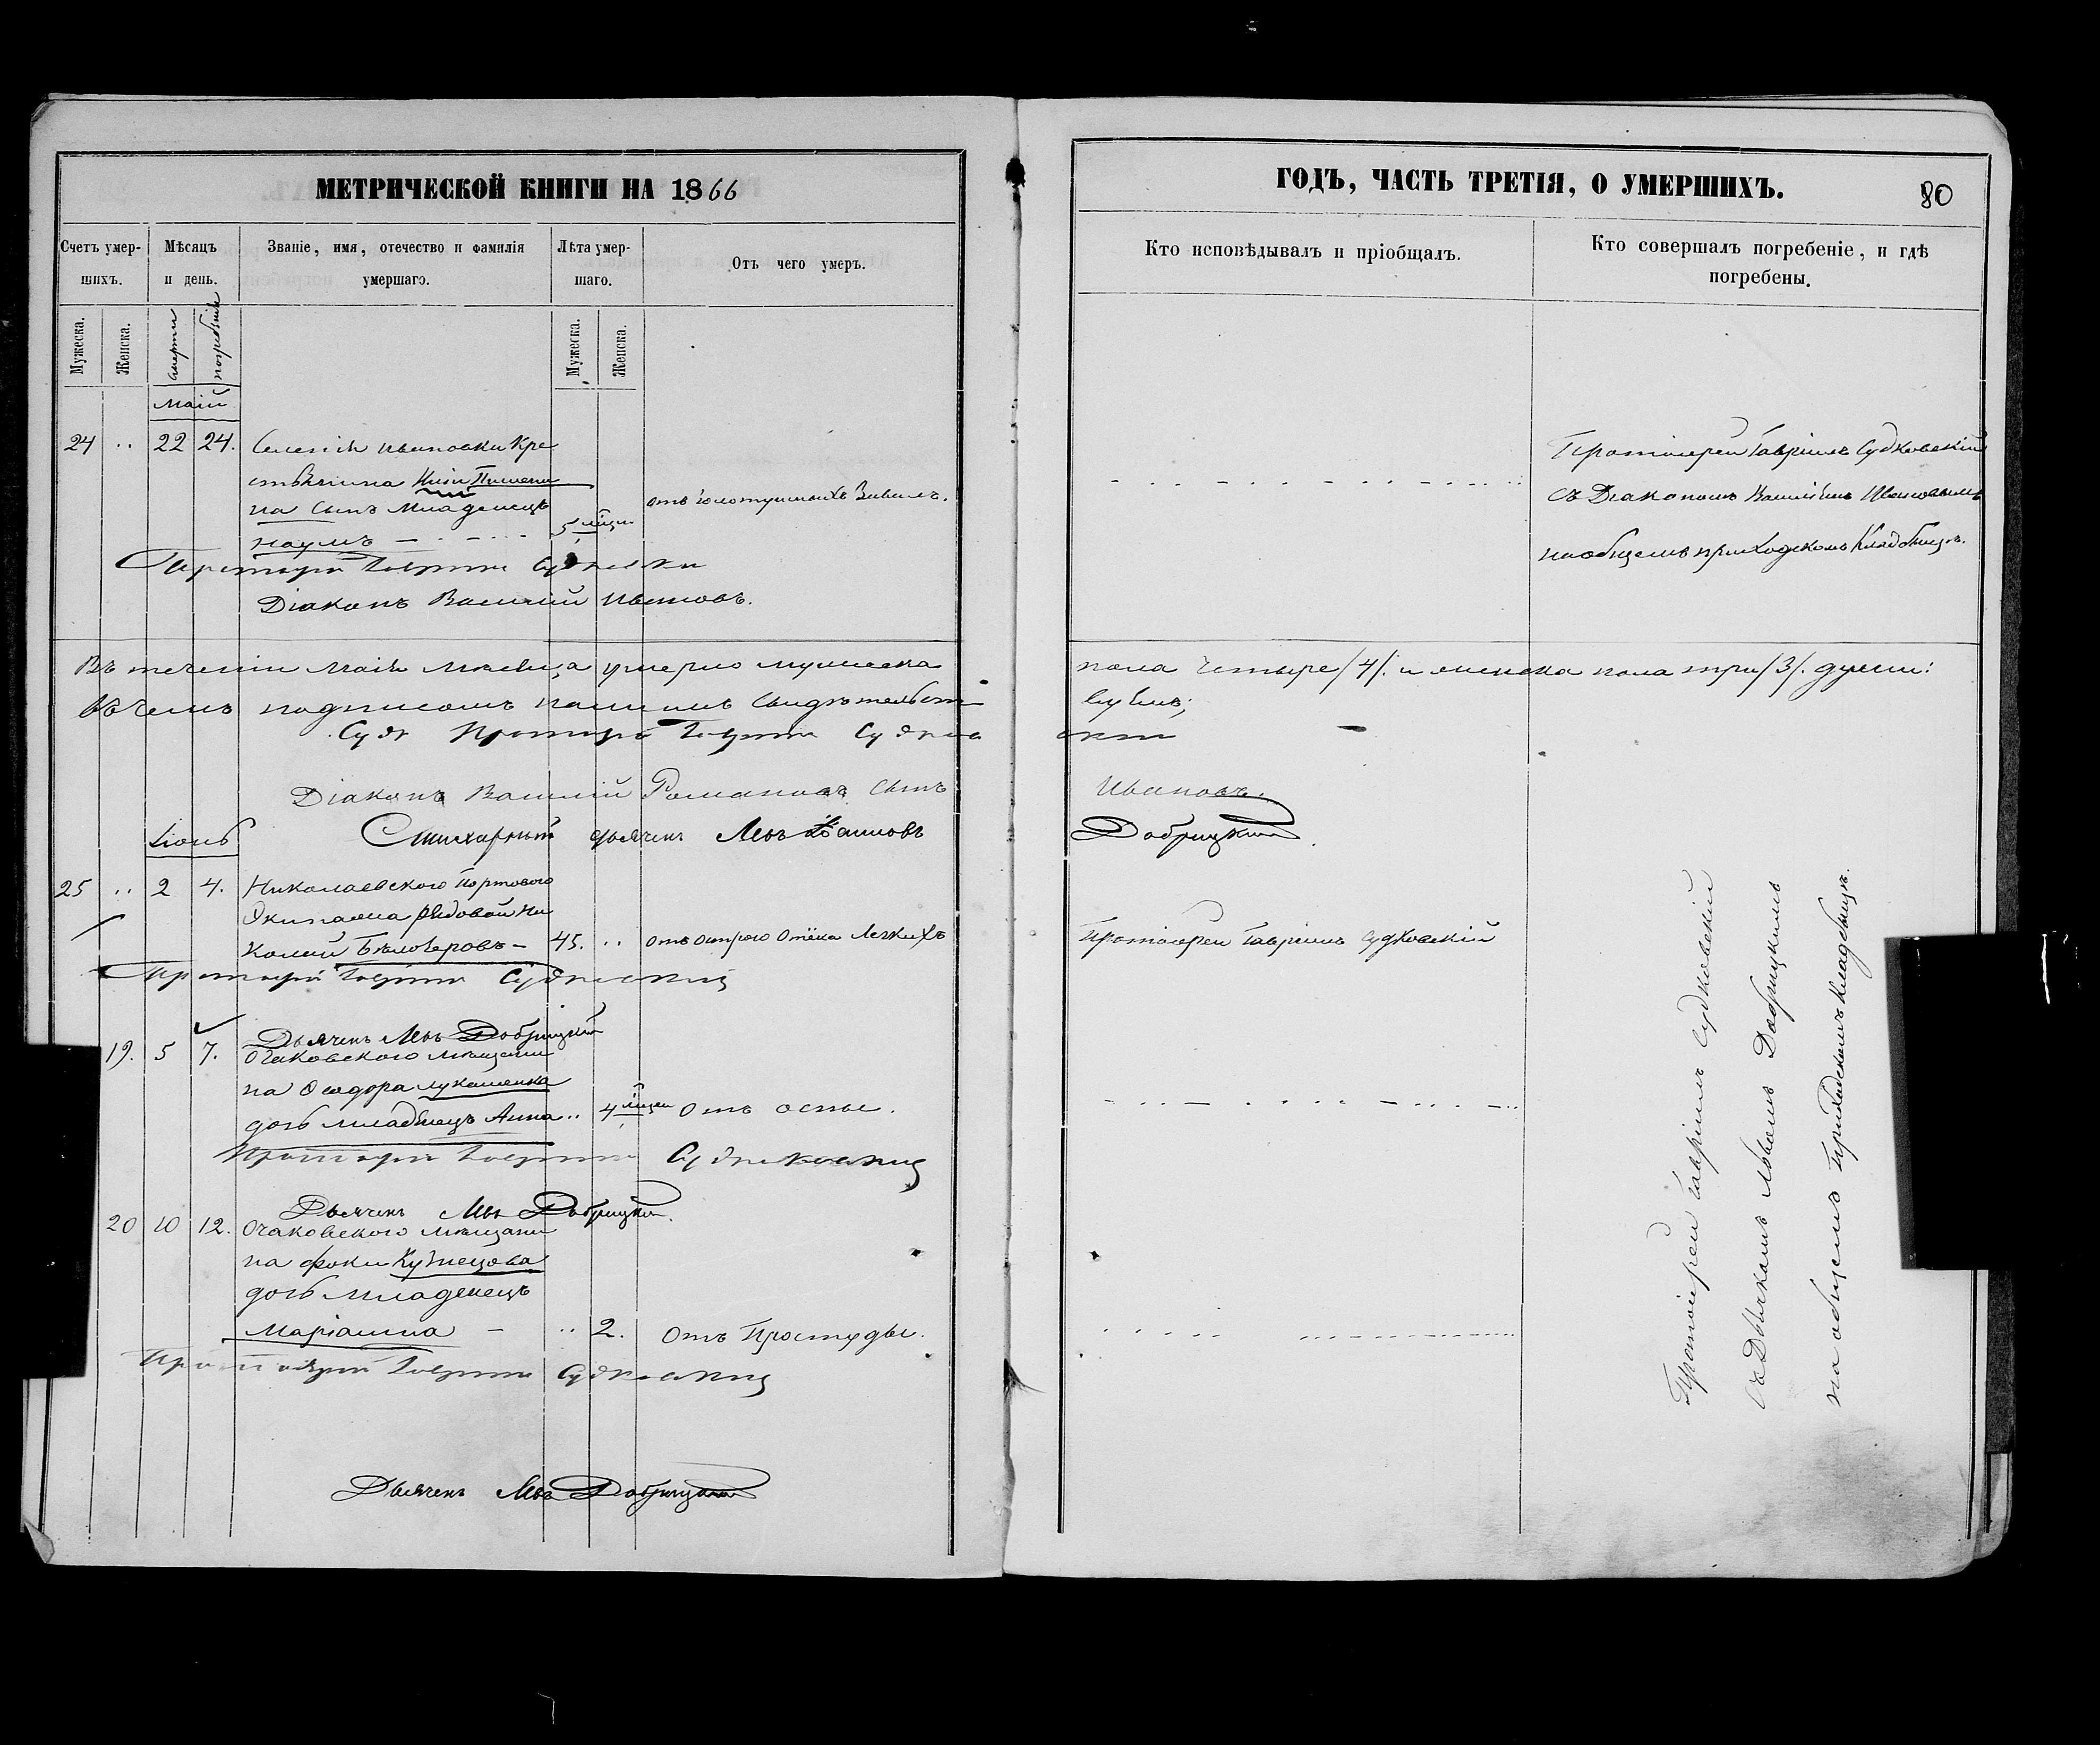 МЕТРИЧЕСКОЙ КНИГИ НА 1866
Счетъ умер-
шихъ.
Мѣсяцъ
и день.
Званіе, имя, отечество и фамилія
умершаго.
Лѣта умер-
шаго.
Отъ чего умеръ.
Мужеска.
Женска.
смерти
погребенія
Мужеска.
Женска.
Маій
24 .. 22 24. Селенія Ивановки Кре
стьянина
на сынъ Младенецъ
Наумъ
5 мѣсяц
отъ золотушныхъ
Протоіерей Гавріилъ Судковскій
Діаконъ Василій Ивановъ.
Въ теченіи Маія Мѣсяца умерло мужеска
въ чемъ подписомъ нашимъ свидѣтельст
Протоіерей Гавріилъ Судков
Діаконъ Василій Романовъ сынъ
Стихарный дьячекъ Левъ
Іюнь
25 .. 2 4. Николаевского Портового
Экипажа рядовой Ни
колай Бѣлочеровъ – 45. .. отъ острого отёка Легкихъ
Протоіерей Гавріилъ Судковскій
Дьячекъ Левъ Добрицкій
19. 5 7. Очаковского мѣщани
на Ѳеодора Лукашенка
дочь младенецъ Анна .. 4 мѣсяц отъ оспы.
Протоіерей Гавріилъ Судковскій
Дьячекъ Левъ Добрицкій.
20 10 12. Очаковского мѣщани
на Фоки Кузнецова
дочь младенецъ
Маріанна – .. 2. отъ Простуды.
Протоіерей Гавріилъ Судковскій
Дьячекъ Левъ Добрицкій
ГОДЪ, ЧАСТЬ ТРЕТІЯ, О УМЕРШИХЪ.
80
Кто исповѣдывалъ и пріобщалъ.
Кто совершалъ погребеніе, и гдѣ
погребены.
Протоіерей Гавріилъ Судковскій
съ Діакономъ Василіемъ Ивановымъ
на общемъ приходскомъ Кладбищѣ.
пола четыре /4/. и женска пола три /3/. души:
вуемъ;
скій
Ивановъ.
Добрицкій.
Протоіерей Гавріилъ Судковскій
Протоіерей Гавріилъ Судковскій
съ Дьячкомъ Львомъ Добрицкимъ
на общемъ Приходскомъ Кладбищѣ.